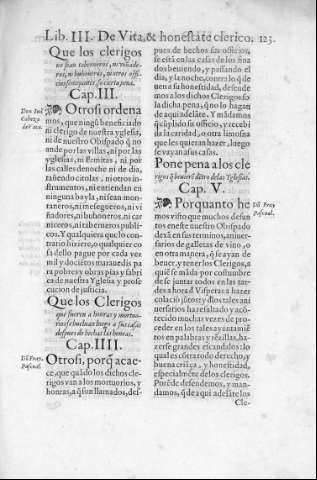 Lib. III. De Vita, & honestate clerico. 123.
Que los clerigos
no sean taberneros, ni viñade
ros, ni buhoneros, ni otros offi
cios semejantes so cierta pena.
Cap. III.
Otrosi ordena
mos, que ningũ beneficiado
ni clerigo de nuestra yglesia,
ni de nuestro Obispado q̃ no
ande por las villas, ni por las
yglesias, ni Ermitas, ni por
las calles de noche ni de dia,
tañendo citolas, ni otros in-
strumentos, ni entiendan en
ninguna bayla, ni sean mone-
taneros, ni mesegueros, ni vi
ñadores, ni buhoneros, ni car
niceros, ni taberneros publi-
cos. Y qualquier que lo con-
trario hiziere, o qualquier co
sa dello pague por cada vez
mil y doziẽtos marauedis pa
ra pobres y obras pias y fabri
ca de nuestra Yglesia y prose
cucion de justicia.
Que los Clerigos
que fueren a honras y mortuo-
rios se bueluan luego a sus casas
despues de hechas las honras.
Cap. IIII.
Otrosi, porq̃ acae-
ce, que quãdo los dichos cle-
rigos van a los mortuorios, y
honras, a q̃ son llamados, des-
pues de hechos sus officios,
se estã en las casas de los fina
dos beuiendo, y passando el
dia, y la noche, contra lo que de
uen a su honestidad, defende
mos a los dichos Clerigos so
la dicha pena, q̃ no lo hagan
de aqui adelãte. Y mãdamos
q̃ cũplido su officio, y recebi
da la caridad, o otra limosna
que les quieran hazer, luego
se vayan a sus casas.
Pone pena a los cle
rigos q̃ beuierẽ dẽtro de las Yglesias.
Cap. V.
Porquanto he
mos visto que muchos defun
tos eneste nuestro Obispado
dexã en sus terminos, aniuer-
sarios de galletas de vino, o
en otra manera, q̃ se ayan de
beuer, y tener los Clerigos, a
quiẽ se mãda por costumbre
de se juntar todos en las tar
des a hora d̃ Visperas a hazer
colaciõ jũtos: y d̃los tales ani
uersarios ha resultado y acõ-
tecido muchas vezes de pro-
ceder en los tales ayuntamiẽ
tos en palabras y rẽzillas, ha-
zerse grandes escandalos: lo
qual es cõtra todo derecho, y
buena criãça, y honestidad,
especialmẽte de los clerigos.
Porẽde defendemos, y man-
damos, q̃ de aqui adelãte los
Cle-
Don Jua
Cabeça
de vaca.
Dõ Fray
Pasqual.
Dõ Fray
Pasqual.